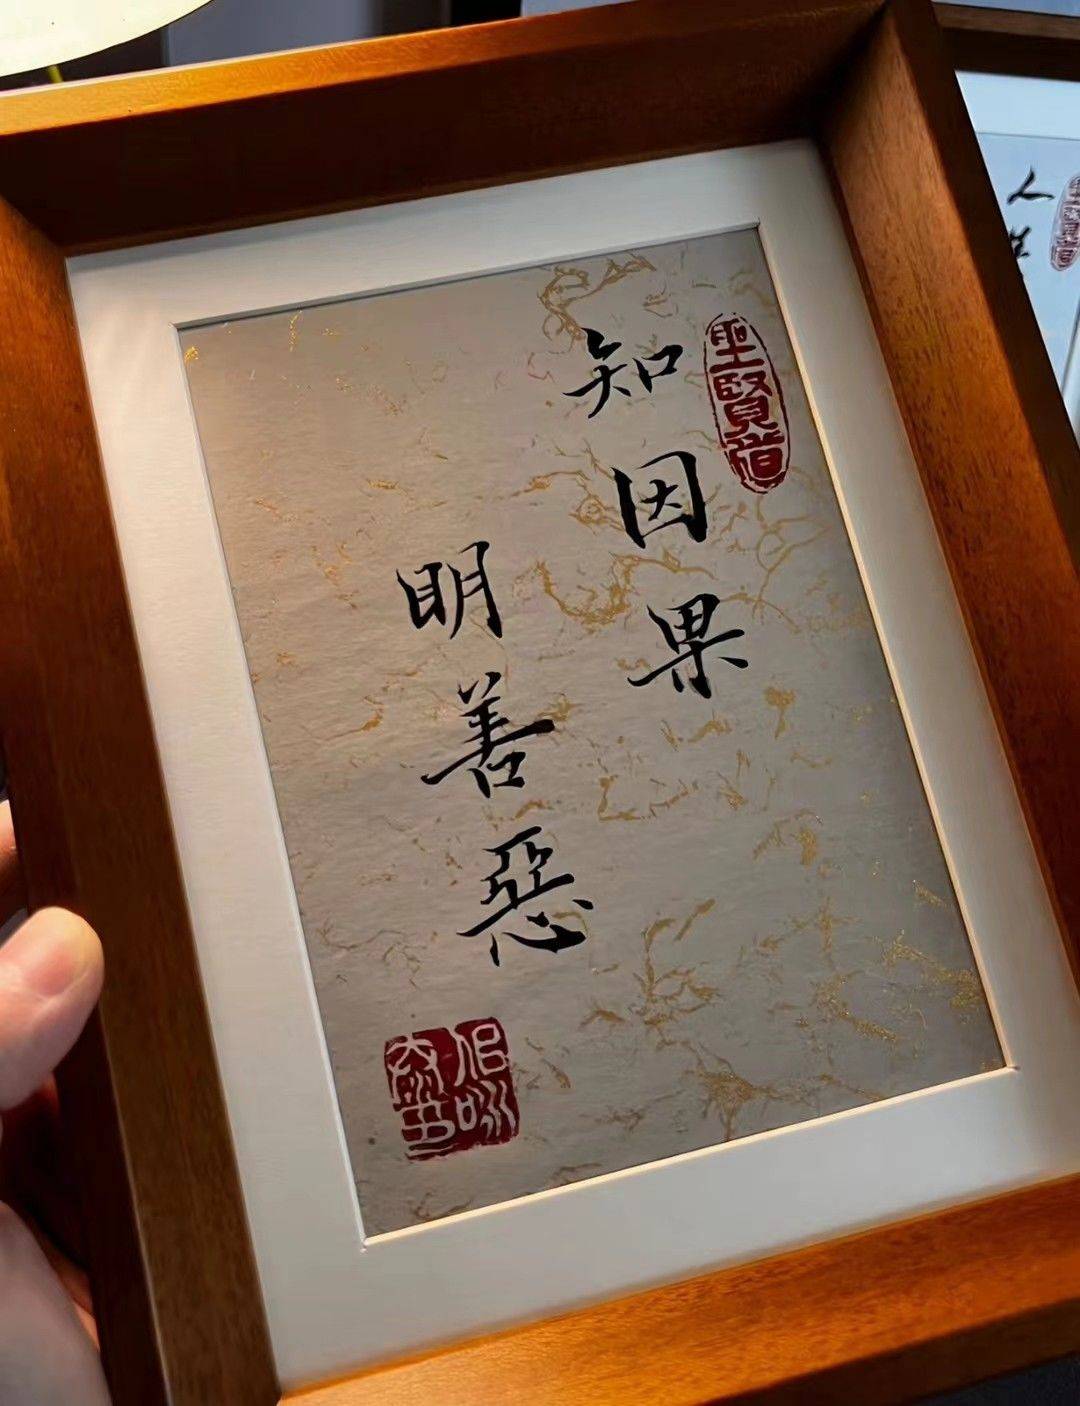 聖賢道
知因果
明善惡
人